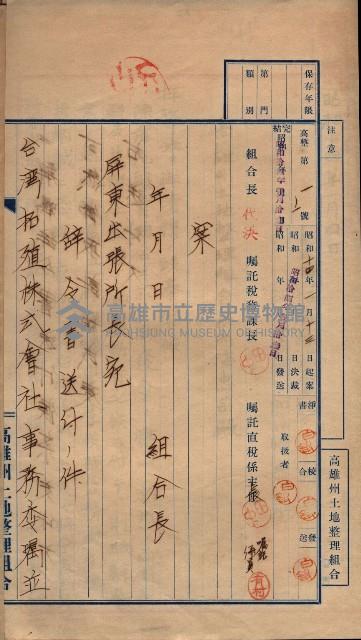 保存年限
第 門
類別
注意
完結
高整第一ノ 號
昭和十五年一月十二日起案
昭和 年 日決裁
昭和 年 日發送
淨書
校合
發送
取扱者
組合長
代決
囑託稅務課長
囑託直稅係主任
高雄州土地整理組合
案
年月日
組合長
屏東出張所長宛
辭令書送付ノ件
台灣拓殖株式會社事務委囑並
高雄州土地整理組合
高雄市立歷史博物館
KAOHSIUNG MUSEUM OF HISTORY